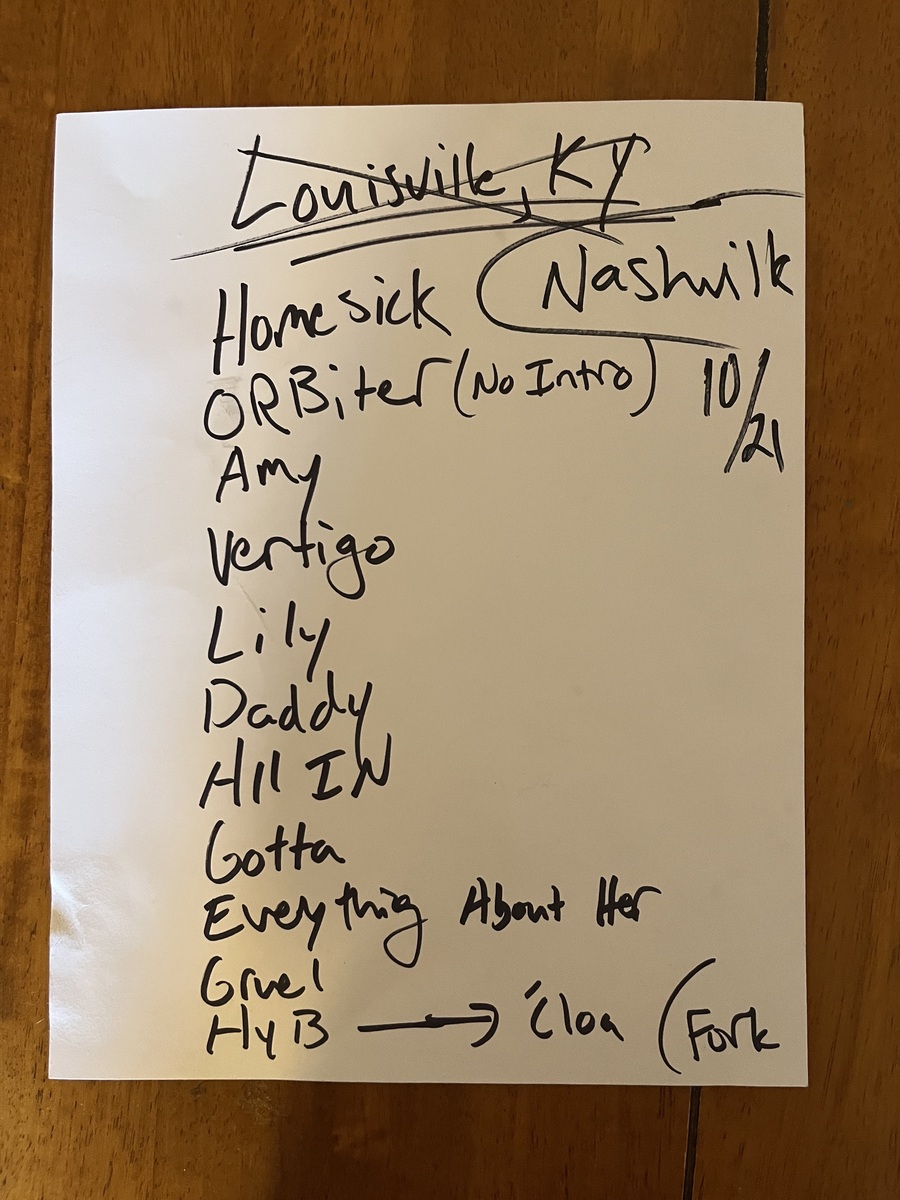 Louisville, KY
Nashville
Homesick
ORBiter (No Intro)
10/21
Amy
Vertigo
Lily
Daddy
All IN
Gotta
Everything About Her
Gruel
HyB → 'Cloa (Fork